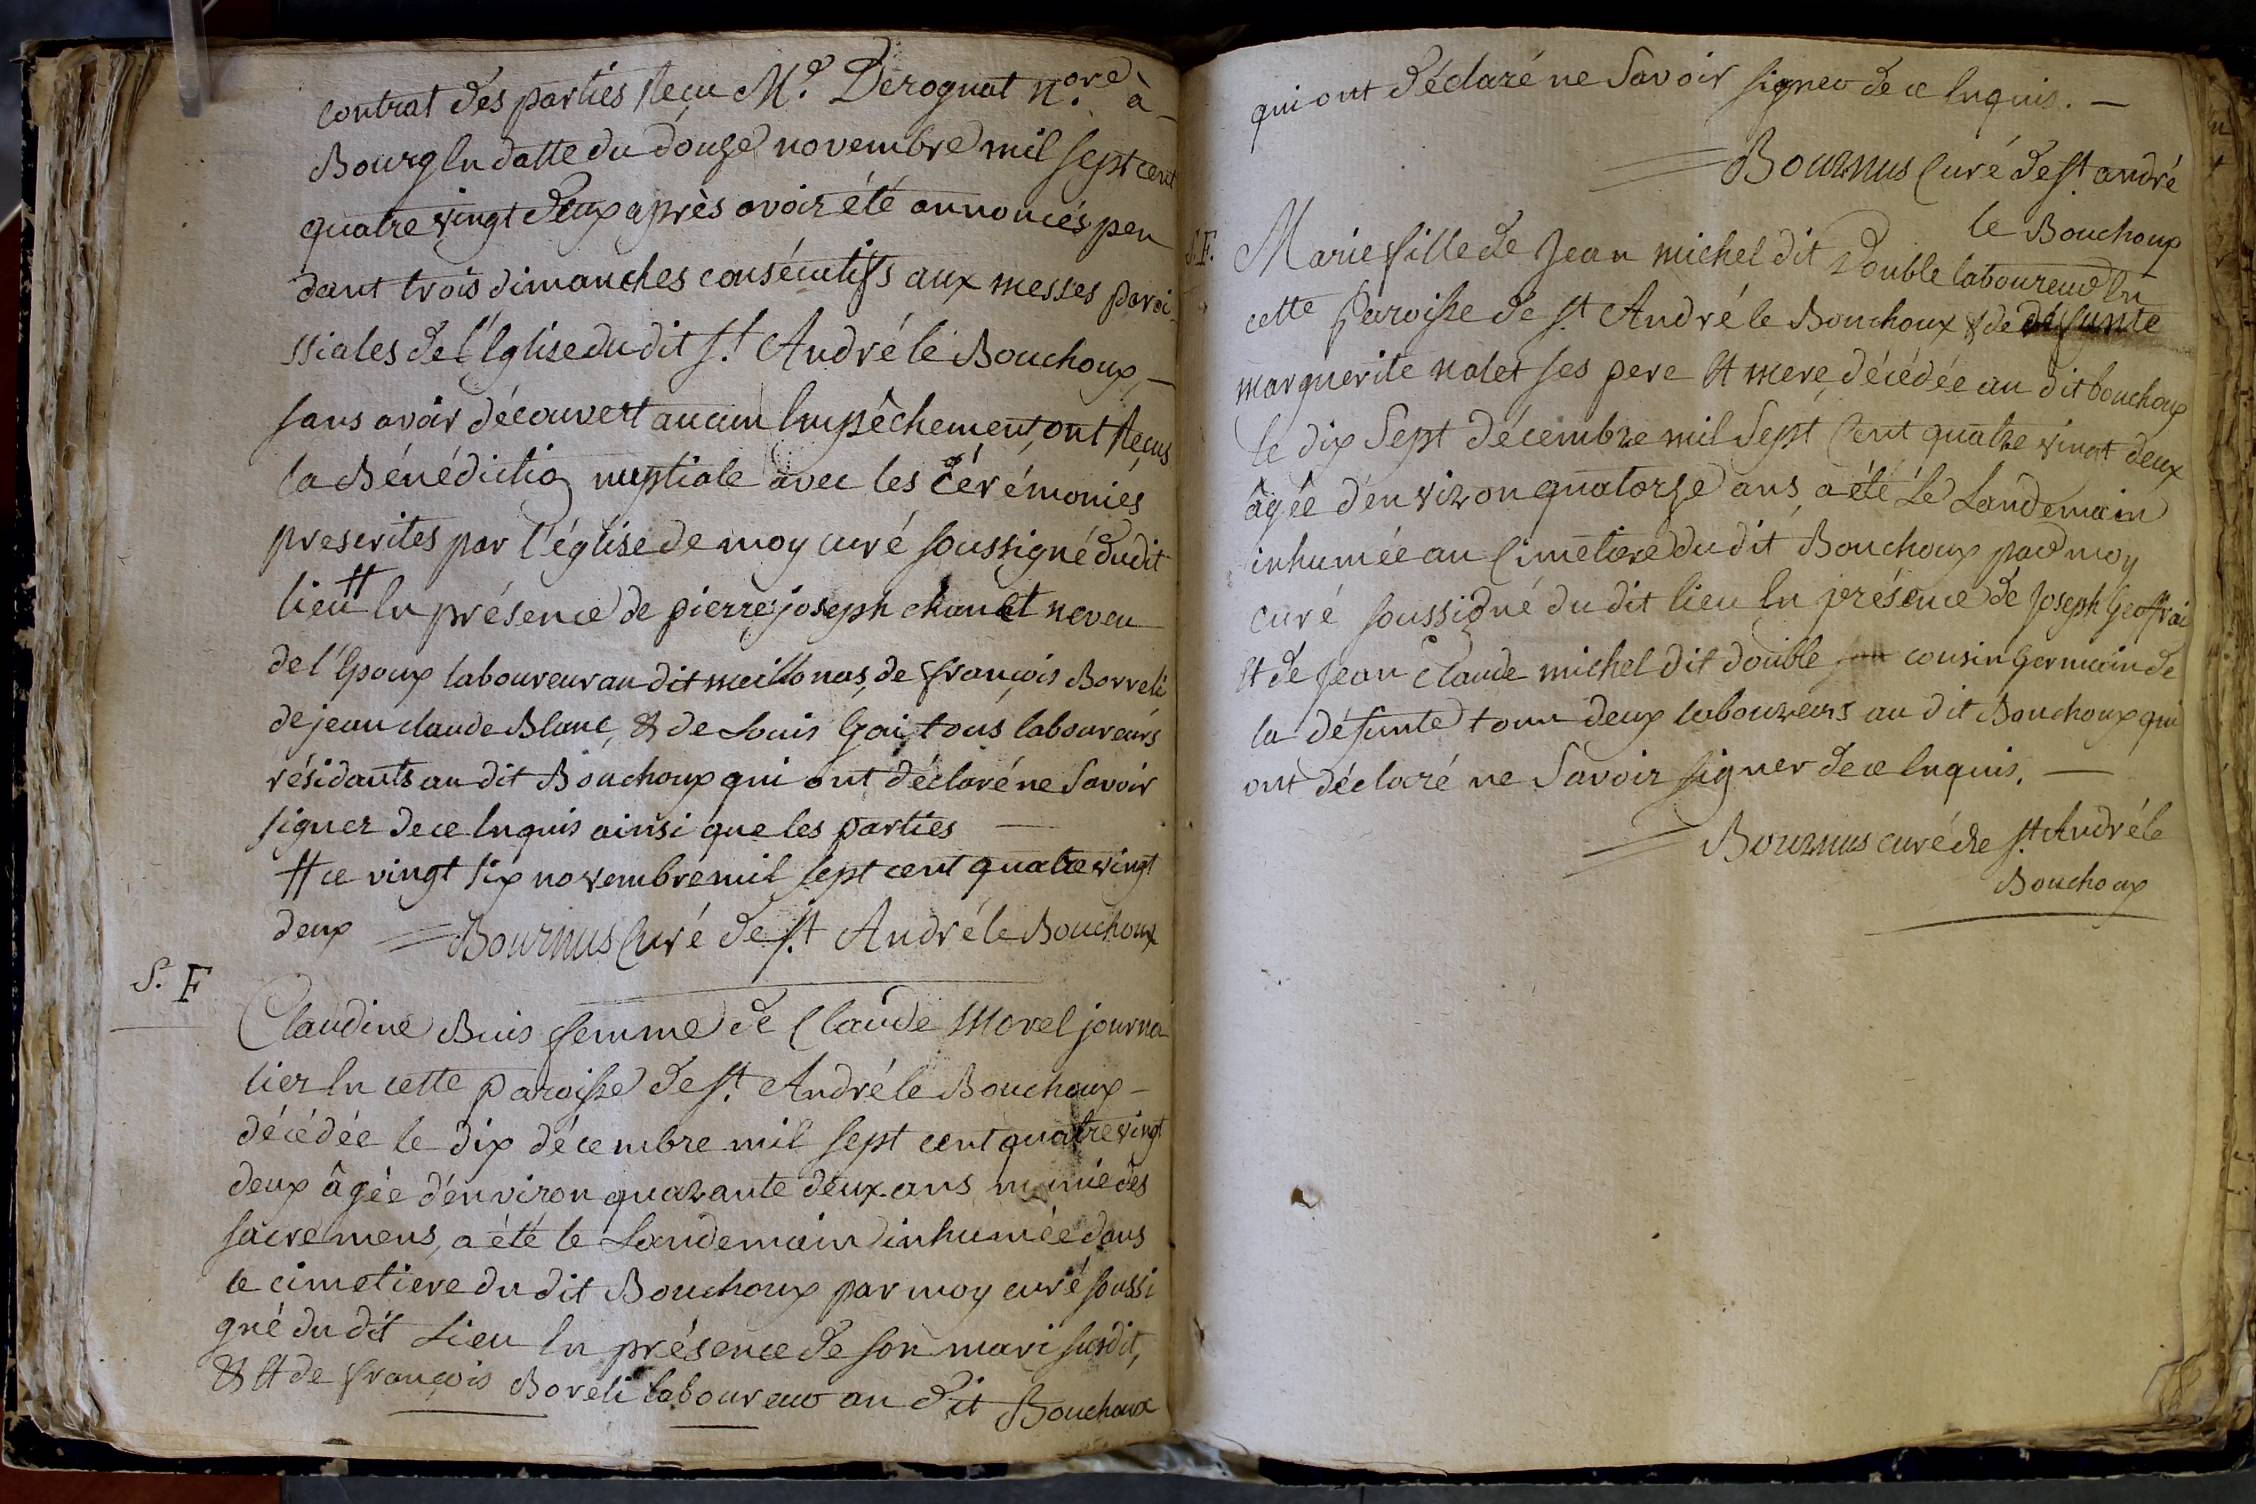 contrat des parties reçu Me. Derognat nore. à
Bourg en datte du douze novembre mil sept cent
quatre vingt deux après avoir été annoncés pen
dant trois dimanches consécutifs aux messes paroi
ssiales de l'Eglise du dit st. André le Bouchoux,
sans avoir découvert aucun Empêchement, ont reçus
la Bénédictio nuptiale avec les cérémonies
prescrites par l'église de moy curé soussigné du dit
lieu # En présence de pierre joseph neveu
de l'Epoux laboureur au dit meillonas, de françois Borreli
de jean claude Blanc, & de Louis Gai, tous laboureurs
résidants au dit Bouchoux qui ont déclaré ne savoir
signer de ce Enquis ainsi que les parties
# ce vingt six novembre mil sept cent quatre vingt
deux = Bournus Curé de st. André le Bouchoux
S. F
Claudine Buis femme de Claude Morel journa
lier En cette paroisse de st. André le Bouchoux
décédée le dix décembre mil sept cent quatre vingt
deux âgée d'environ quarante deux ans, munie des
sacremens, a été le Landemain inhumée dans
le cimetiere du dit Bouchoux par moy curé soussi
gné du dit Lieu En présence de son mari susdit,
& Et de françois Boreli laboureur au dit Bouchoux
qui ont déclaré ne savoir signer de ce Enquis. —
= Bournus Curé de st. andré
le Bouchoux
S.F.
Marie fille de Jean michel dit Double laboureur En
cette Paroisse de st. André le Bouchoux & de défunte
marguerite nalet ses pere Et mere, décédée au dit bouchoux
le dix Sept décembre mil Sept Cent quatre vingt deux
âgée d'environ quatorze ans, a été le Landemain
inhumée au Cimetiere du dit Bouchoux par moy
curé soussigné du dit lieu En présence de Joseph Geoffrai
Et de Jean Claude michel dit double cousin Germain de
la défunte tous deux laboureurs au dit Bouchoux qui
ont déclaré ne savoir signer de ce Enquis. —
= Bournus curé de st. André le
Bouchoux